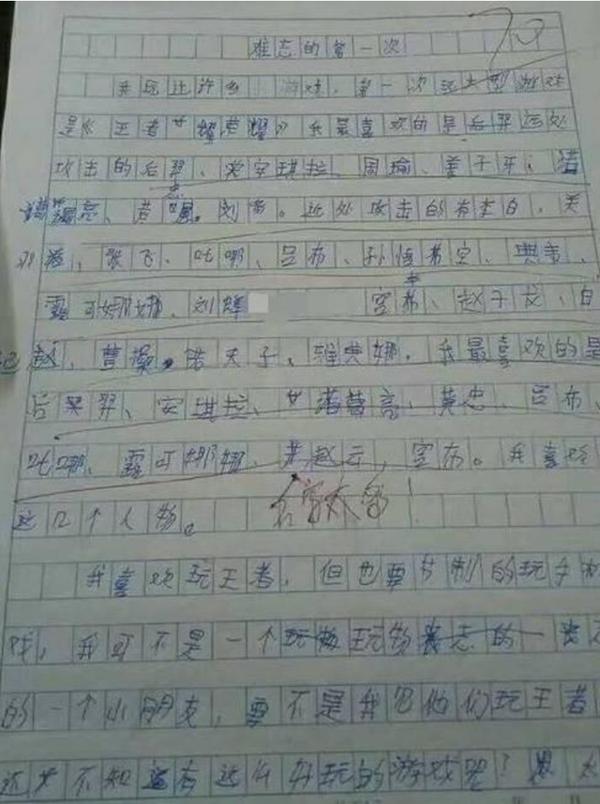 难忘的第一次
我玩过许多 游戏，第一次玩大型游戏
是《王者荣耀》我最喜欢的是后羿远处
攻击的后羿、安琪拉、周瑜、姜子牙、诸
葛亮、黄忠、刘备。近处攻击的有李白、关
羽、张飞、吒哪、吕布、孙悟空、典韦、
露可娜娜、刘 空布、赵子龙、白
起、曹操、诺夫子、雅典娜。我最喜欢的是
后羿、安琪拉、诸葛亮、黄忠、吕布、
吒哪、露可娜娜、赵云，空布。我喜欢
这几个人物。
名字太多！
我喜欢玩王者，但也要节制的玩
戏，我可不是一个玩物丧志的
的一个小朋友，要不是我 他们玩王者
还 不知 有这么好玩的游戏呢！